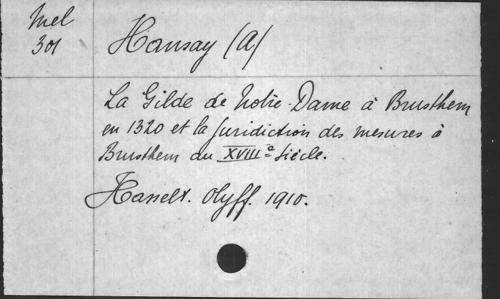 Mel
301
Hansay (A)
La Gilde de Notre-Dame à Brusthem
en 1320 et la juridiction des mesures à
Brusthem au XVIIIe Siècle.
Hasselt. Olyff. 1910.